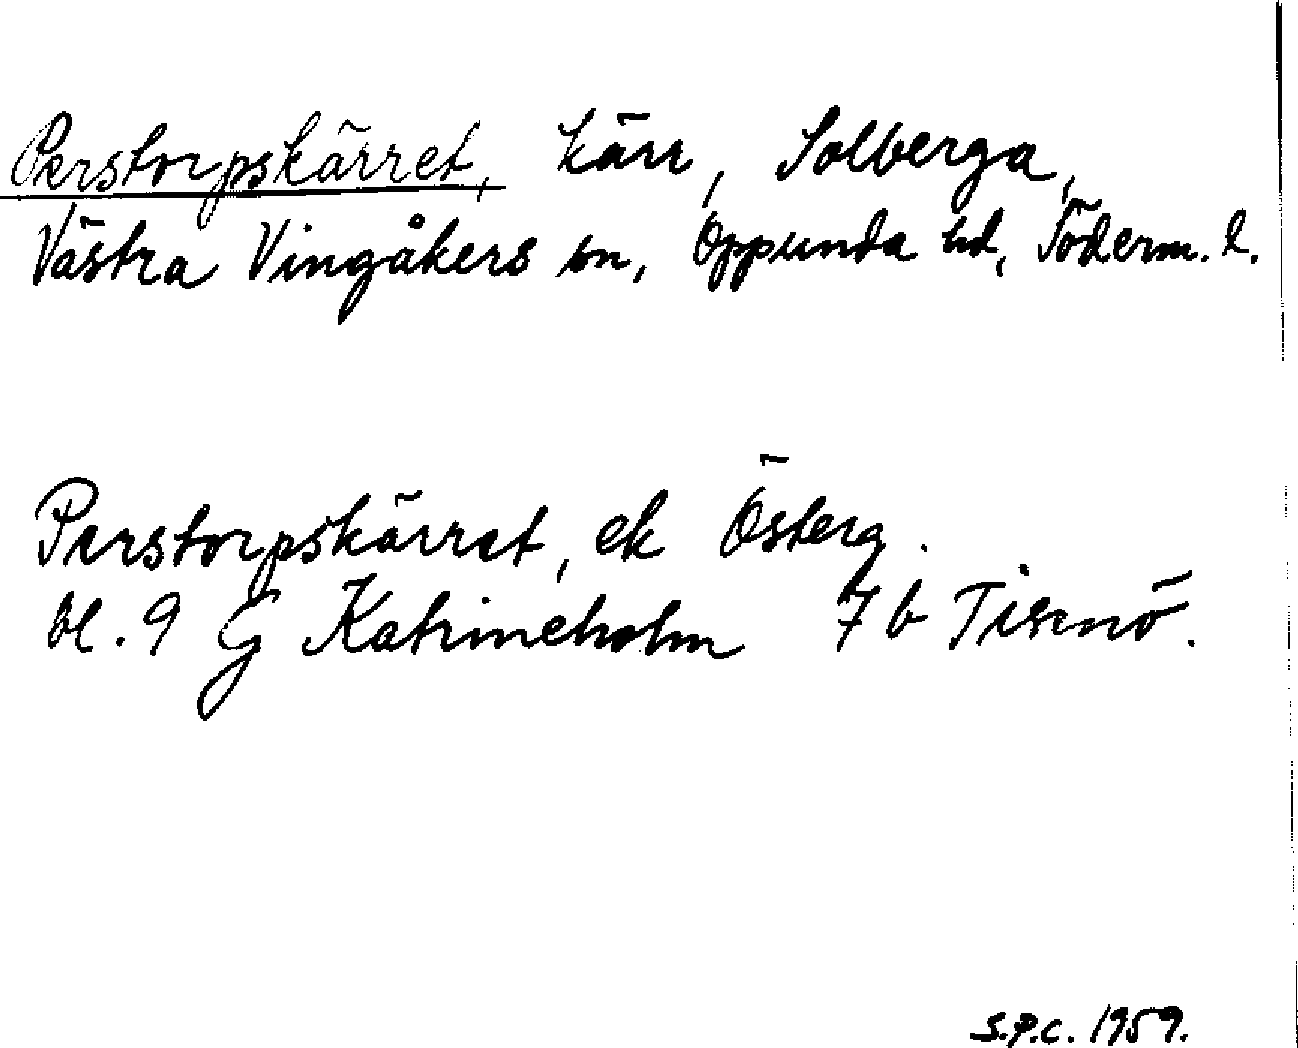 Perstorpskärret, kärr, Solberga,
Västra Vingåkers sn, Oppunda hd, Söderm. l.
Perstorpskärret, ek Österg.
bl. 9 G Katrineholm 7 b Tisenö.
S.P.C. 1959.